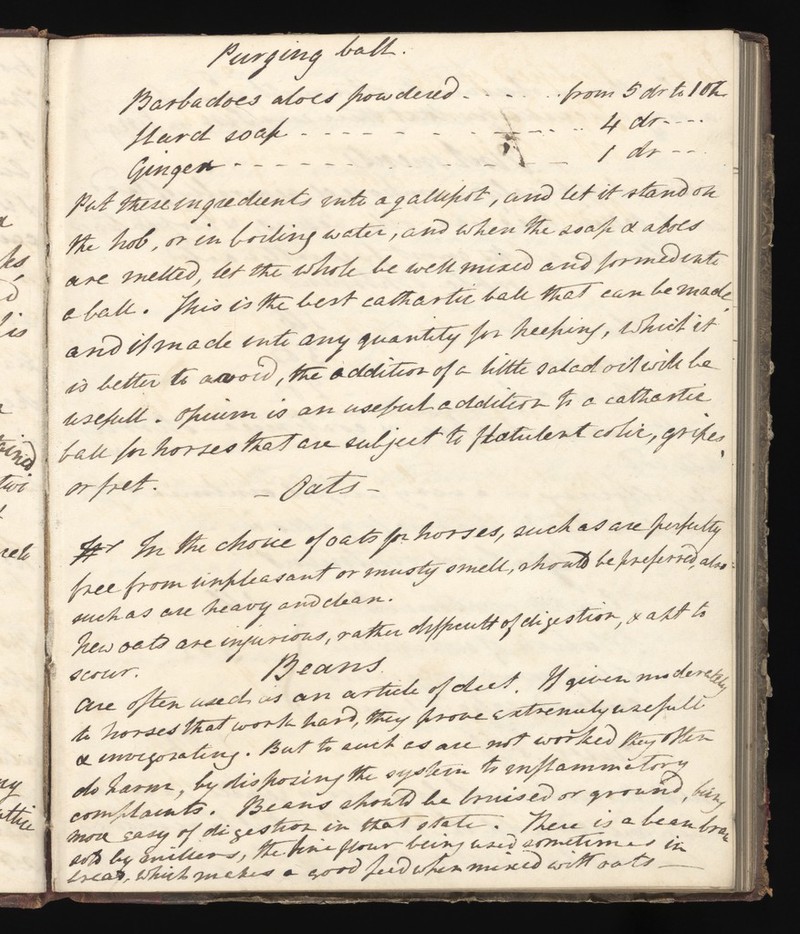 Purging ball.
Barbadoes aloes powdered - - - - - from 5 dr to 10
Hard soap - - - - - - - - - - - 4 dr - - -
Ginger - - - - - - - - - - - 1 dr - - -
Put these ingredients into a gallipot, and let it stand on
the hob, or in boiling water, and when the soap & aloes
are melted, let the whole be well mixed and formed into
a ball. This is the best cathartic ball that can be made,
and if made into any quantity for keeping, which it
is better to avoid, the addition of a little salad oil will be
usefull. Opium is an useful addition to a cathartic
ball for horses that are subject to flatulent colic, gripes,
or fret.
- Oats -
In the choice of oats for horses, such as are perfectly
free from unpleasant or musty smell, should be preferred, also
such as are heavy and clean.
New oats are injurious, rather difficult of digestion, & apt to
scour.
Beans
are often used as an article of diet. If given moderately
to horses that work hard, they prove extremely usefull
& invigorating. But to such as are not worked they often
do harm, by disposing the system to inflammatory
complaints. Beans should be bruised or ground, being
more easy of digestion in that state. There is a bean bran
sold by millers, the fine flour being used sometimes in
bread, which makes a good feed when mixed with oats -